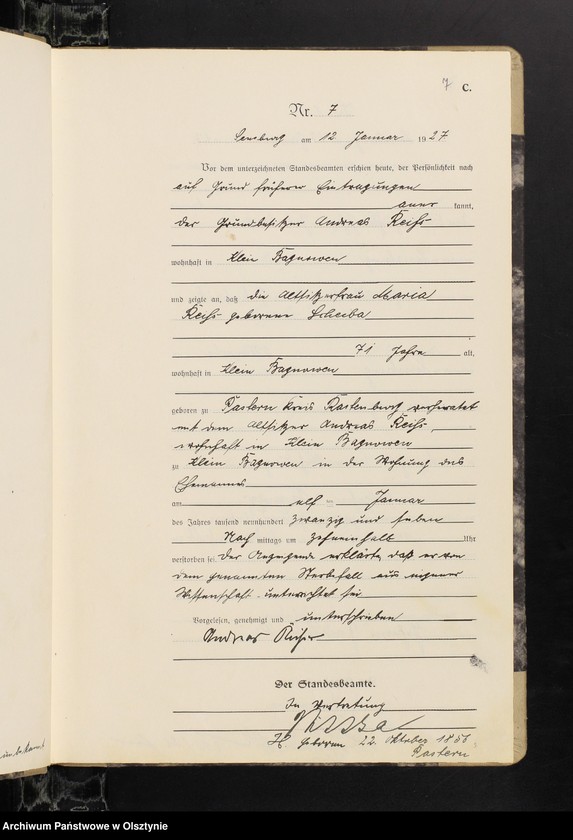 7 C.
Nr. 7
Sensburg am 12 Januar 1927
Vor dem unterzeichneten Standesbeamten erschien heute, der Persönlichkeit nach
auf Grund früherer Eintragungen
aner kannt,
der Grundbesitzer Andreas Reihs
wohnhaft in Klein Bagnowen
und zeigte an, daß die Altsitzerfrau Maria
Reihs geborene Scheiba
71 Jahre alt,
wohnhaft in Klein Bagnowen
geboren zu Pastern Kreis Rastenburg verheiratet
mit dem Altsitzer Andreas Reihs
wohnhaft in Klein Bagnowen
zu Klein Bagnowen in der Wohnung des
Ehemannes
am elf ten Januar
des Jahres tausend neunhundert zwanzig und sieben
Nach mittags um zehneinhalb Uhr
verstorben sei. Der Anzeigende erklärte, daß er von
dem genannten Sterbefall aus eigener
Wissenschaft unterrichtet sei
Vorgelesen, genehmigt und unterschrieben
Andreas
Der Standesbeamte.
In Vertretung
geboren 22. Oktober 1855
Pastern
Archiwum Państwowe w Olsztynie